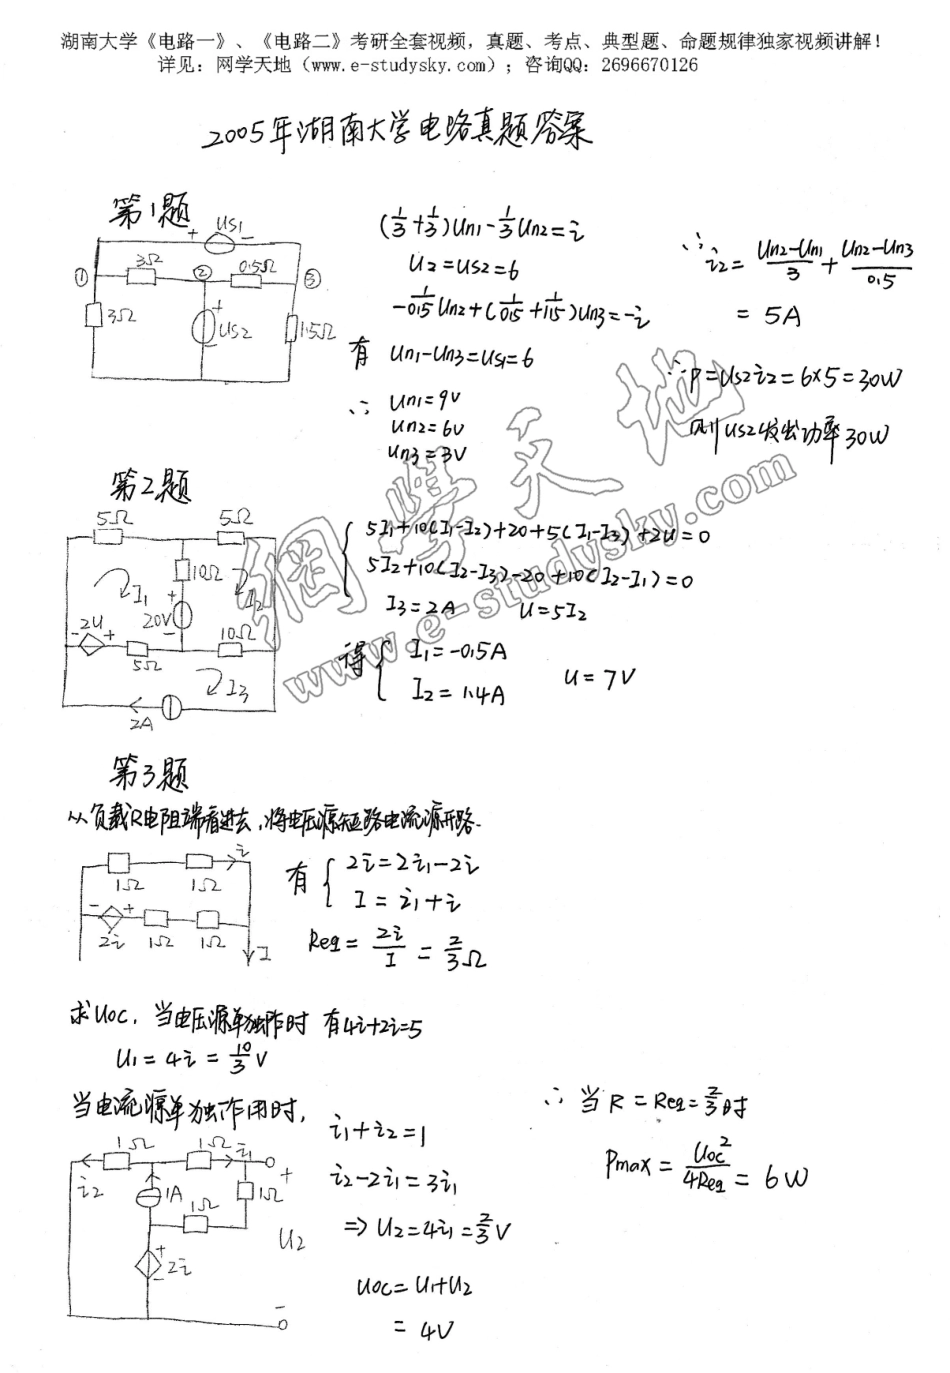 湖南大学《电路一》、《电路二》考研全套视频，真题、考点、典型题、命题规律独家视频讲解！
详见：网学天地（www.e-studysky.com）；咨询QQ：2696670126
2005年湖南大学电路真题答案
第1题
+ US1 -
① 3Ω ② 0.5Ω ③
3Ω
+ US2 -
1.5Ω
(1/3+1/3)Un1-1/3Un2=i
U2=US2=6
-1/0.5Un2+(1/0.5+1/1.5)Un3=-i
有 Un1-Un3=US1=6
∴ Un1=9V
Un2=6V
Un3=3V
∴ i2=(Un2-Un1)/3+(Un2-Un3)/0.5
=5A
∴P=US2i2=6×5=30W
则US2发出功率30W
第2题
5Ω 5Ω
I1 10Ω I2
20V + -
- 2U + 5Ω 10Ω
I3
2A
5I1+10(I1-I2)+20+5(I1-I3)+2U=0
5I2+10(I2-I3)-20+10(I2-I1)=0
I3=2A U=5I2
得 I1=-0.5A
I2=1.4A U=7V
第3题
从负载R电阻端看进去，将电压源短路电流源开路.
1Ω 1Ω i
- + 2i 1Ω 1Ω
I
有 2i=2i1-2i
I=i1+i
Req=2i/I=2/3Ω
求Uoc，当电压源单独作时 有4i+2i=5
U1=4i=10/3V
当电流源单独作用时，
1Ω 1Ω i1
i2 1A 1Ω 1Ω
+ U2 -
+ 2i -
i1+i2=1
i2-2i1=3i1
⇒U2=4i1=2/3V
Uoc=U1+U2
=4V
∴ 当R=Req=2/3时
Pmax=Uoc²/4Req=6W
網學天地
www.e-studysky.com